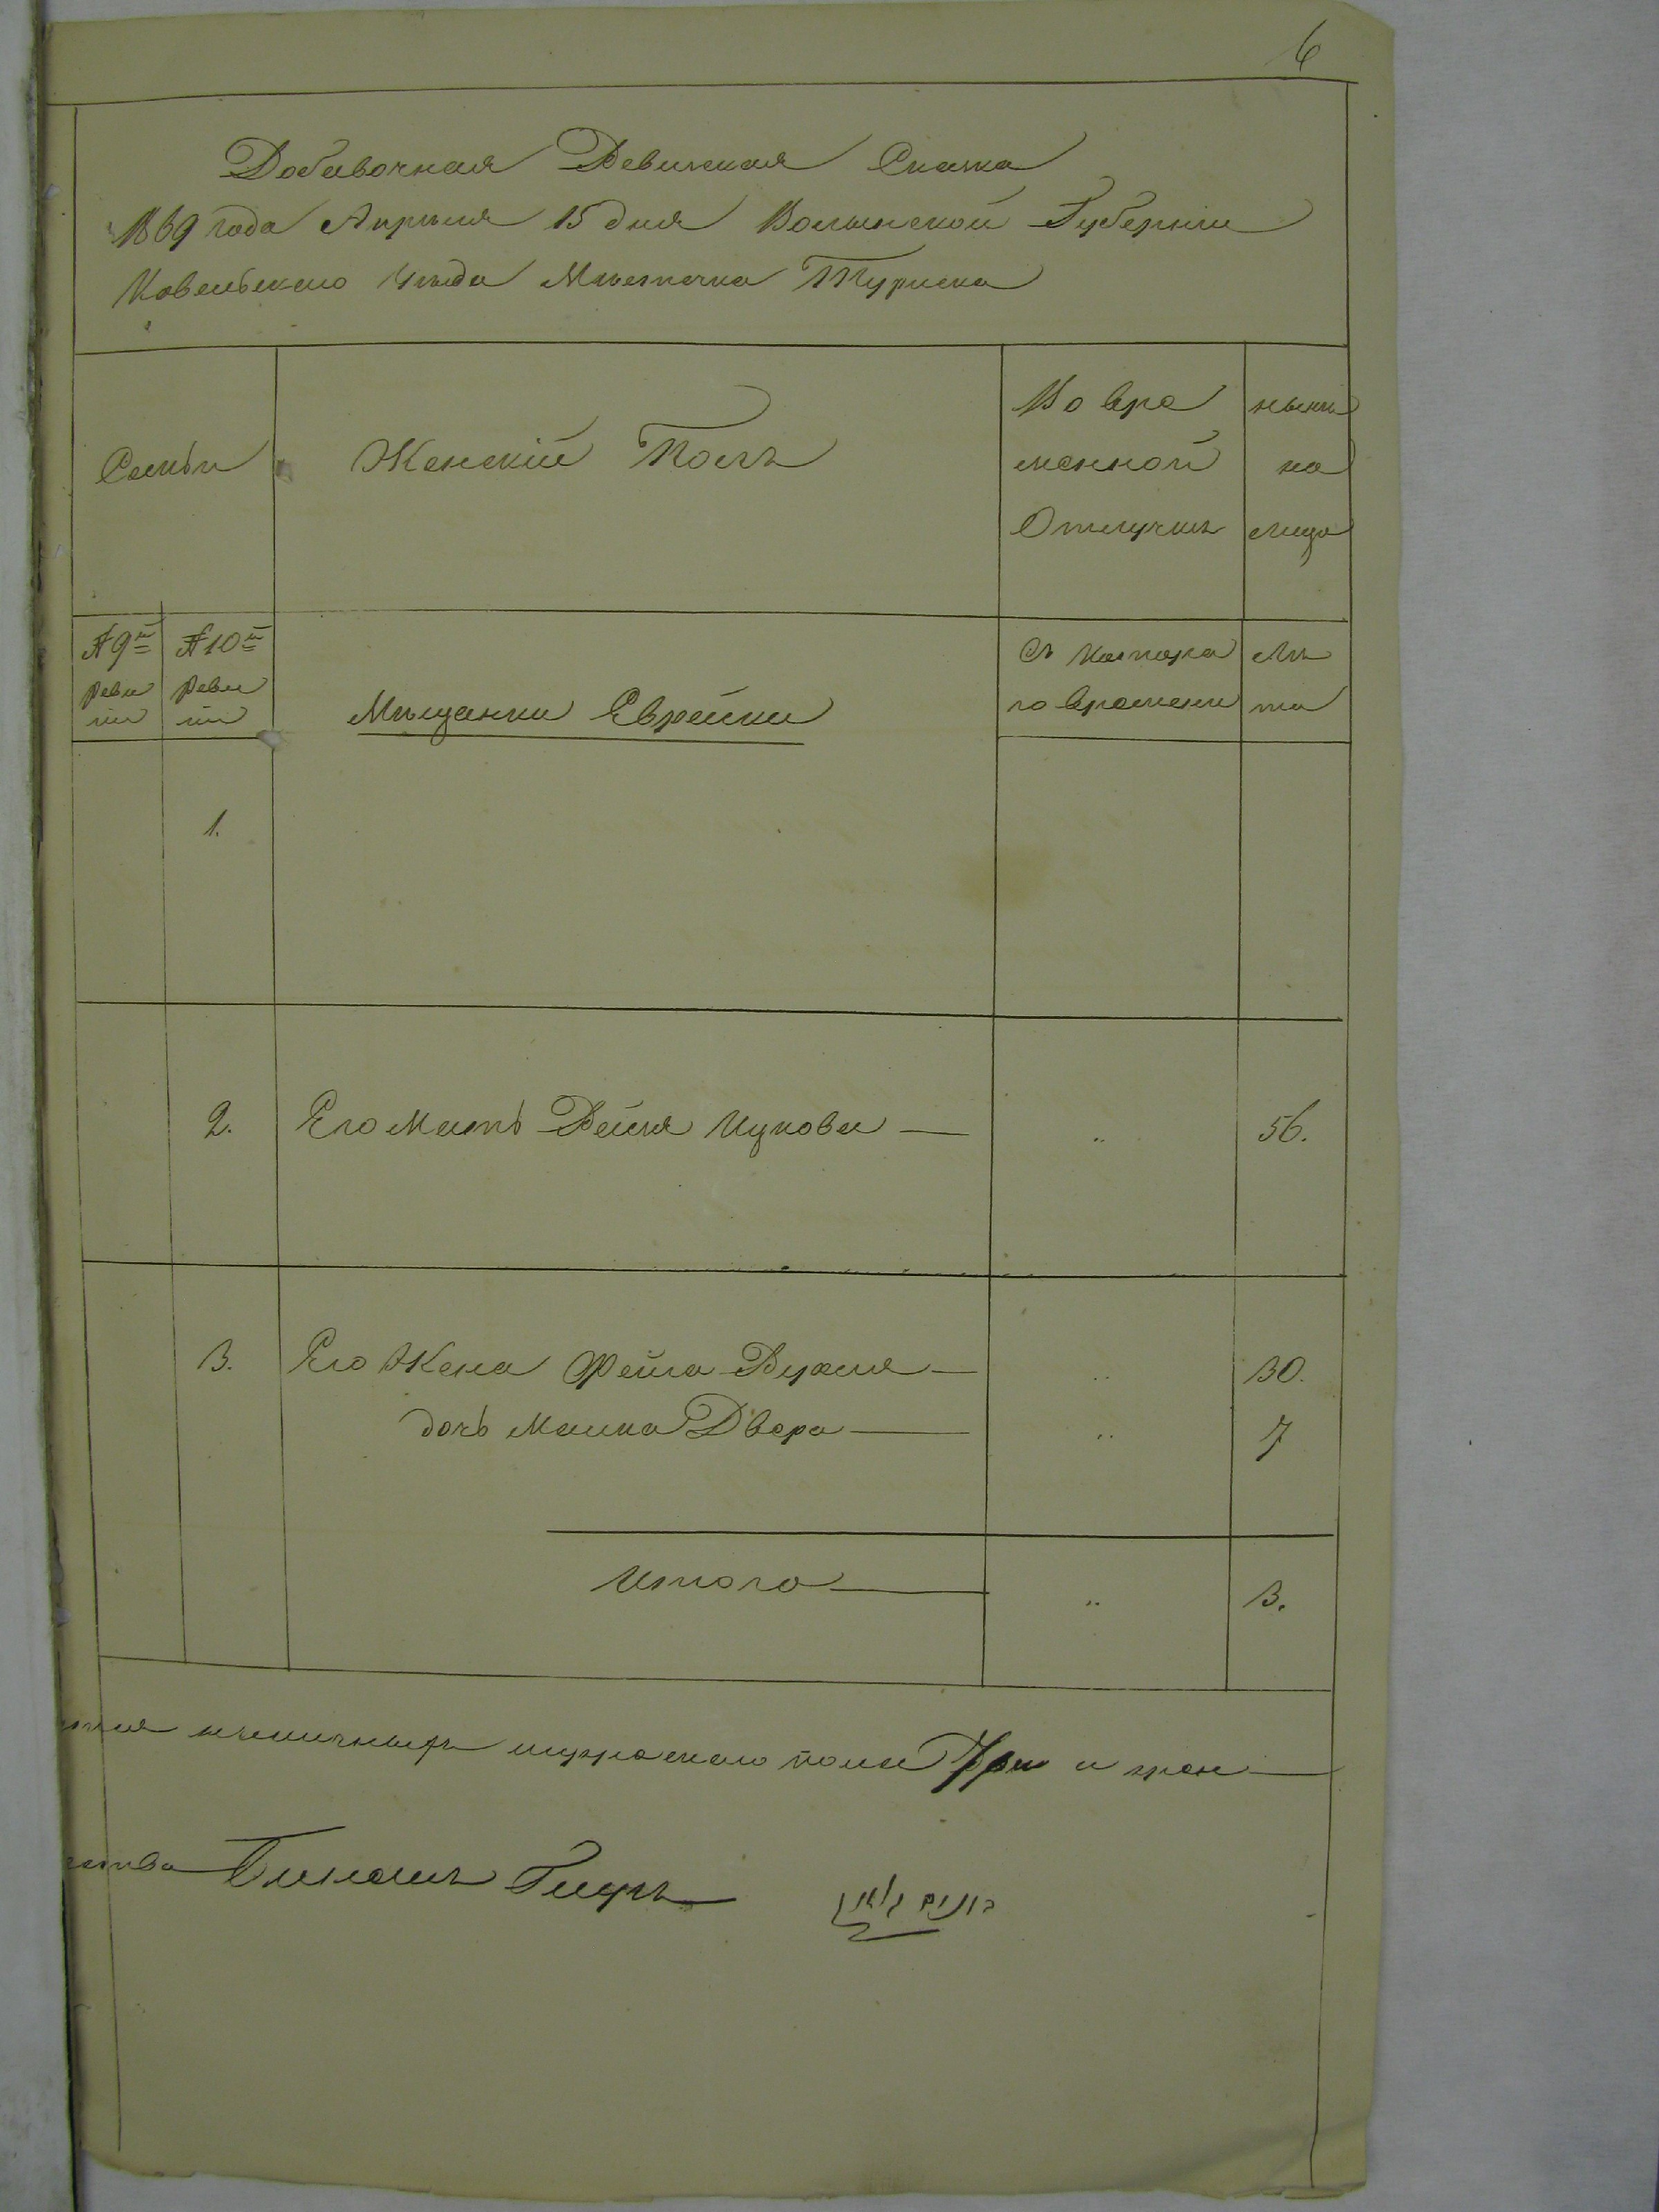 6
Добавочная Ревизская Сказка
1869 года Апрѣля 15 дня Волынской Губерніи
Ковельскаго Уѣзда Мѣстечка Туриска
Семьи
Женскій Полъ
Во вре
менной
Отлучкѣ
нынѣ
на
лицо
№ 9й
реви
зіи
№ 10й
реви
зіи
Мѣщанки Еврейки
Съ котора
го времени
Лѣ
та
1.
2. Его Мать Рейзя Ицкова — „ 56.
3. Его Жена Фейга Рухля — „ 30.
дочь Малка Двора — „ 7
Итого — „ 3.
наличныхъ мужескаго пола Три и жен—